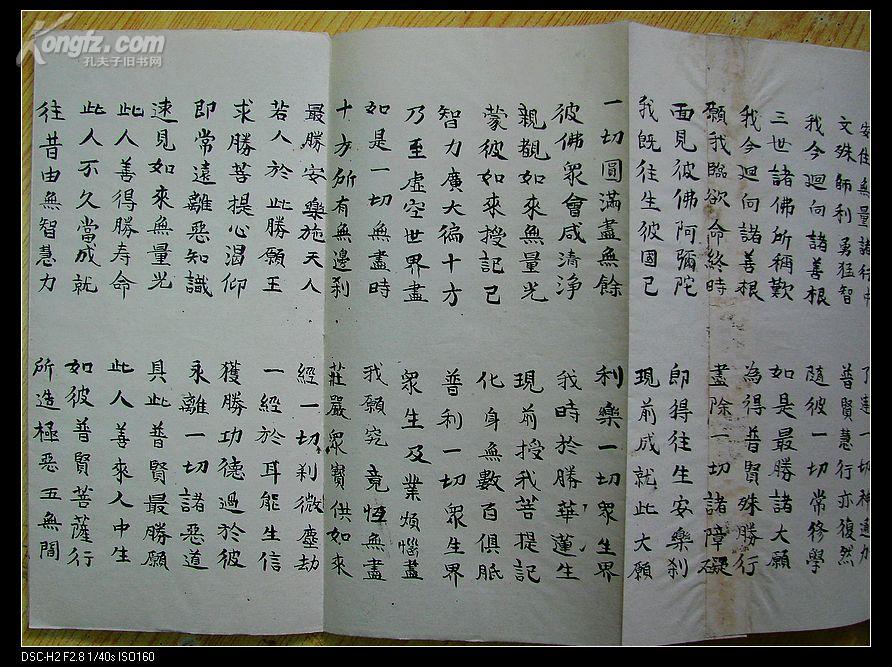 Kongfz.com
孔夫子旧书网
安住無量諸行中 了達一切神通力
文殊師利勇猛智 普賢慧行亦復然
我今迴向諸善根 隨彼一切常修學
三世諸佛所稱歎 如是最勝諸大願
我今迴向諸善根 為得普賢殊勝行
願我臨欲命終時 盡除一切諸障礙
面見彼佛阿彌陀 即得往生安樂刹
我既往生彼國已 現前成就此大願
一切圓滿盡無餘 利樂一切眾生界
彼佛眾會咸清淨 我時於勝華蓮生
親覩如來無量光 現前授我菩提記
蒙彼如來授記已 化身無數百俱胝
智力廣大徧十方 普利一切眾生界
乃至虛空世界盡 眾生及業煩惱盡
如是一切無盡時 我願究竟恆無盡
十方所有無邊刹 莊嚴眾寶供如來
最勝安樂施天人 經一切刹微塵劫
若人於此勝願王 一經於耳能生信
求勝菩提心渴仰 獲勝功德過於彼
即常遠離惡知識 永離一切諸惡道
速見如來無量光 具此普賢最勝願
此人善得勝寿命 此人善來人中生
此人不久當成就 如彼普賢菩薩行
往昔由無智慧力 所造極惡五無間
DSC-H2 F2.8 1/40s ISO160